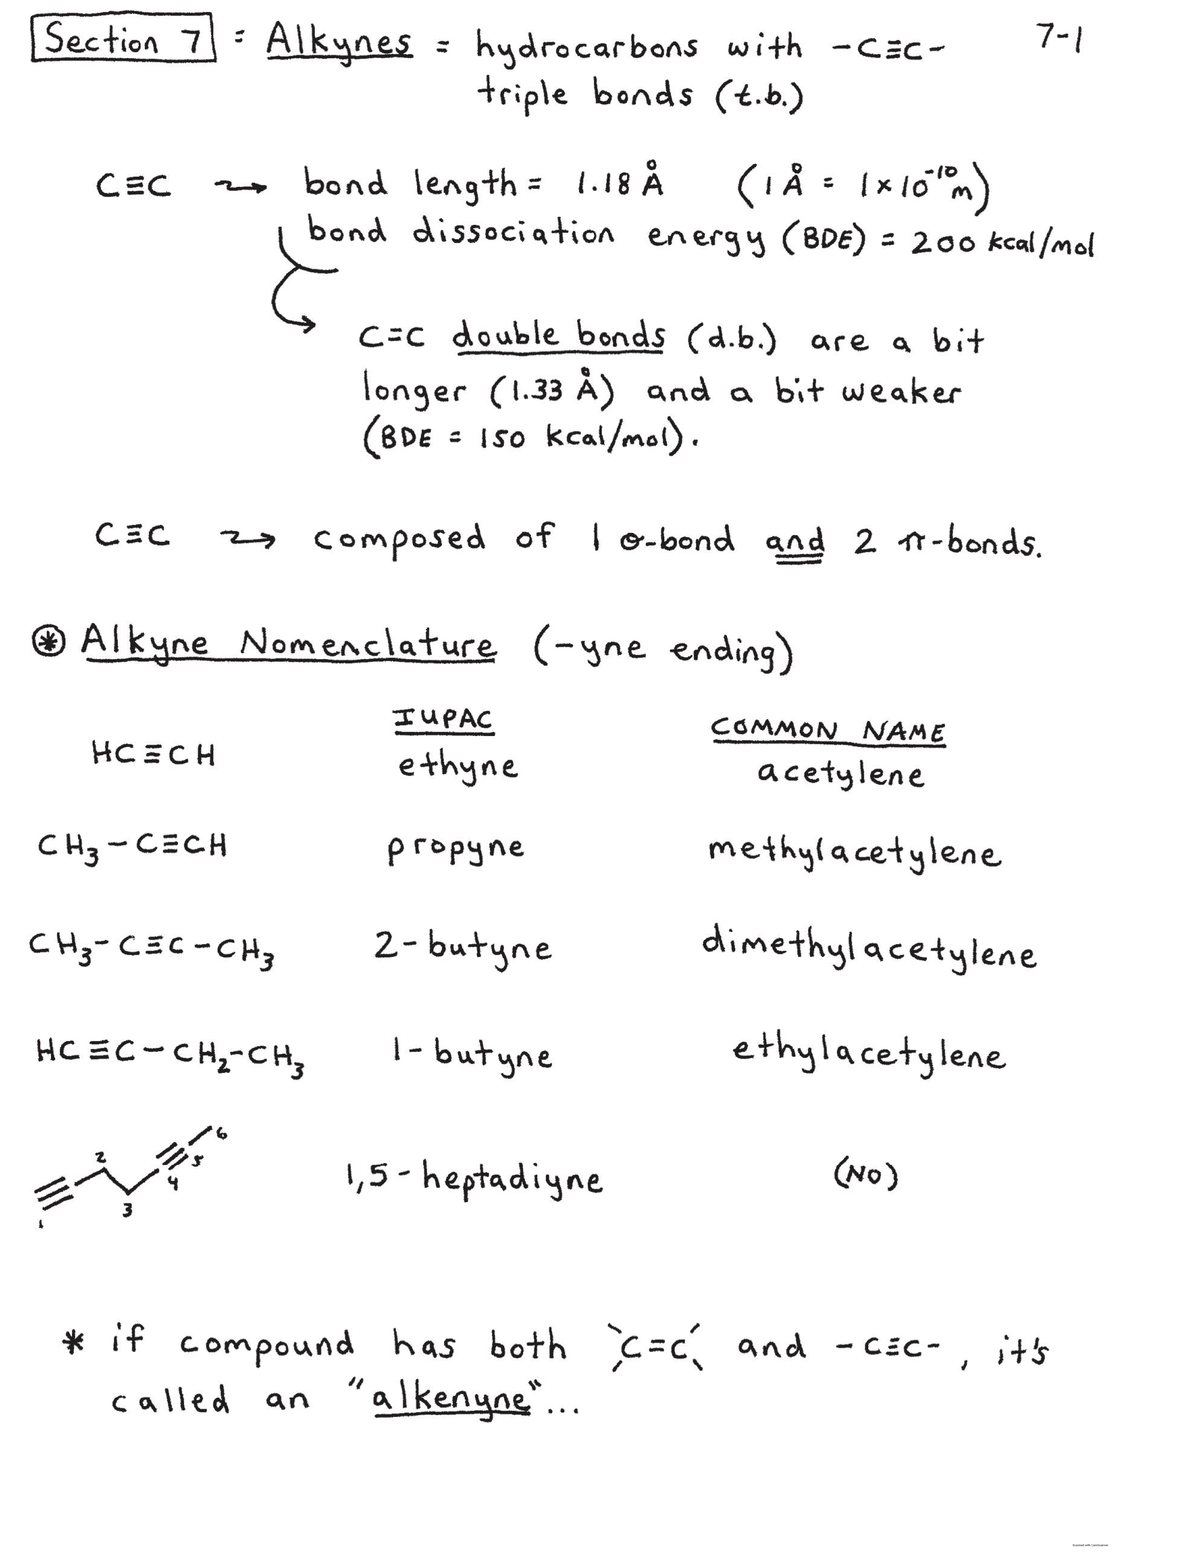 Section 7 : Alkynes = hydrocarbons with -C≡C- 7-1
triple bonds (t.b.)
C≡C ⇝ bond length = 1.18 Å (1 Å = 1x10⁻¹⁰m)
bond dissociation energy (BDE) = 200 kcal/mol
C=C double bonds (d.b.) are a bit
longer (1.33 Å) and a bit weaker
(BDE = 150 kcal/mol).
C≡C ⇝ composed of 1 σ-bond and 2 π-bonds.
⊛ Alkyne Nomenclature (-yne ending)
IUPAC COMMON NAME
HC≡CH ethyne acetylene
CH₃-C≡CH propyne methylacetylene
CH₃-C≡C-CH₃ 2-butyne dimethylacetylene
HC≡C-CH₂-CH₃ 1-butyne ethylacetylene
1 2 3 4 5 6 1,5-heptadiyne (NO)
* if compound has both C=C and -C≡C-, it's
called an "alkenyne"...